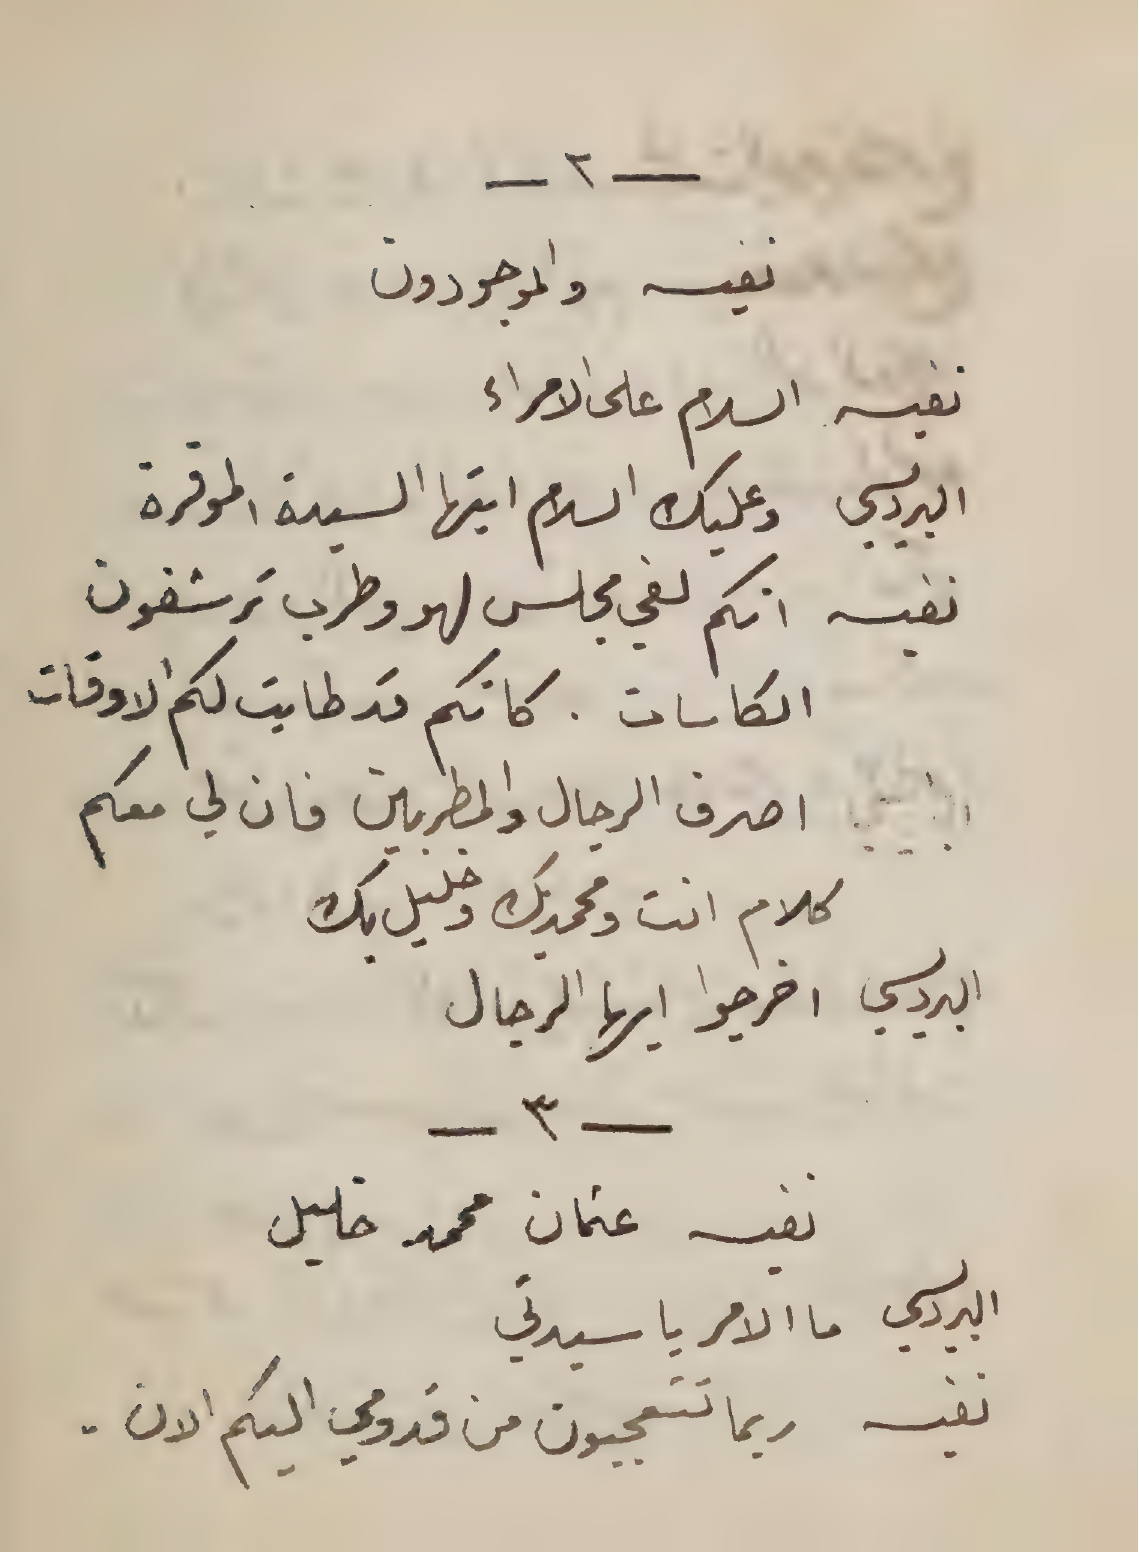 — ٢ —
نفيسه والموجودون
نفيسه السلام على الامراء
البرديسي وعليك السلام ايتها السيدة الموقرة
نفيسه انكم لفي مجلس لهو وطرب ترشفون
الكاسات . كانكم قد طابت لكم الاوقات
اصرف الرجال والمطربين فان لي معكم
كلام انت ومحمد بك وخليل بك
البرديسي اخرجوا ايها الرجال
— ٣ —
نفيسه عثمان محمد خليل
البرديسي ما الامر يا سيدتي
نفيسه ربما تتعجبون من قدومي اليكم الان ..